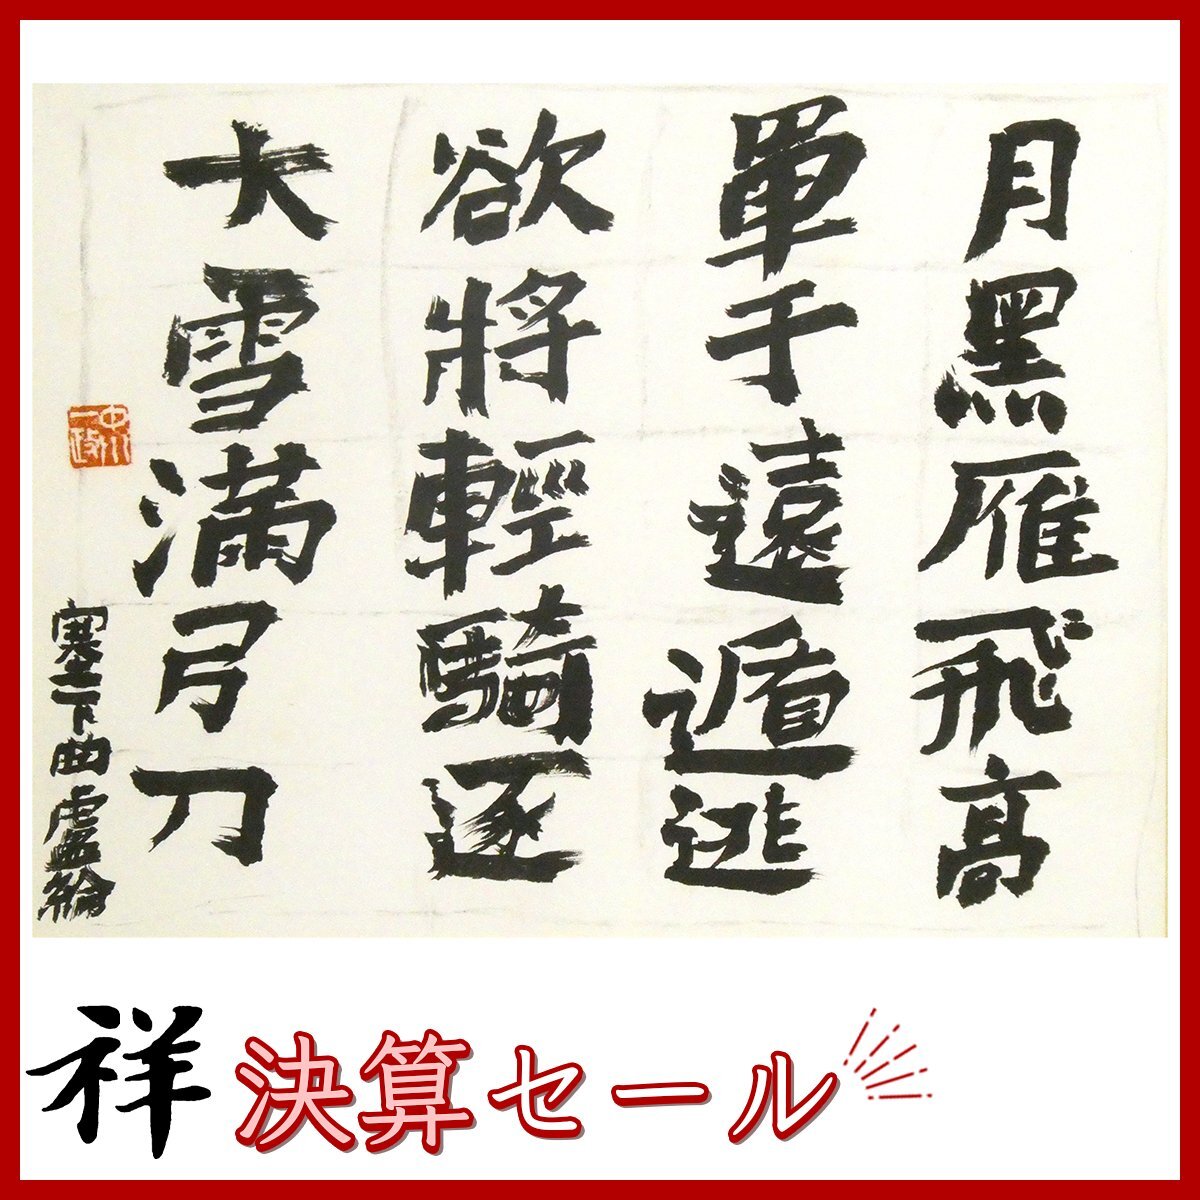 月黑雁飛高
單于遠遁逃
欲將輕騎逐
大雪滿弓刀
塞下曲 盧綸
中川一政
祥 決算セール